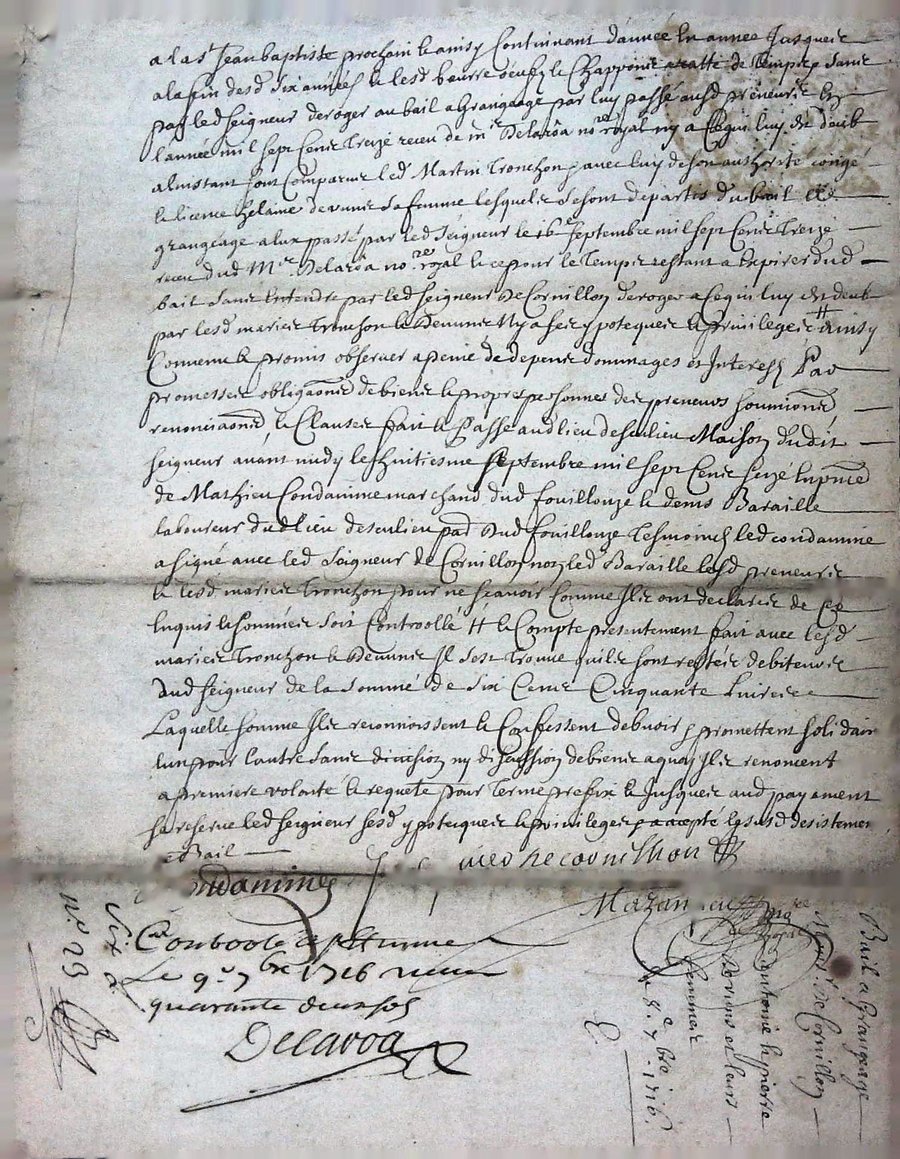 a la st Jean baptiste prochain & ainsy Continuant d'annee En année Jusques
a la fin desd six années & lesd beurre oeufz & Chappons a ratte de temps sans
par led seigneur deroger au bail a Grangeage par luy passé ausd preneurs En
l'année mil sept Cent Treize receu de me Delaroa nore royal ny a Ce qui luy est deub
a linstant sont Comparus led Martin Tronchon & avec luy de son authorité congé
& licence helaine devunis sa femme lesquels se sont departis du bail a
grangeage a Eux passé par led seigneur le 16e septembre mil sept Cent Treize
receu dud Me Delaroa nore royal & ce pour le Temps restant a Expirer dud
bail sans Entendre par led seigneur De Cornillon deroger a Ce qui luy est deub
par lesd mariés Tronchon & Devunis Ny a ses ypoteques & privileges # ainsy
Convenu & promis observer a peine de depens dommages et Interestz Par
promesses obligaons de biens & propres personnes des preneurs soumions
renonciaons & Clauses fait & Passé aud lieu de seulieu Maison dudit
seigneur avant midy le huitiesme septembre mil sept Cent seize En pnce
de Mathieu Condamine marchand dud fouillouze & denis Baraille
laboureur dud lieu de seulieu pae dud fouillouze Tesmoins led condamine
a signé avec led seigneur de Cornillon non led Baraille lesd preneurs
& lesd mariés Tronchon pour ne scavoir Comme Ils ont declarés de Ce
Enquis & sommés soit Controollé # & Compte presentement fait avec lesd
mariés Tronchon & Devunis Il s'est Trouvé quils sont restés debiteurs
dud seigneur de la somme de six Cent Cinquante Livres
Laquelle somme Ils reconnoissent & Confessent debvoir & promettent solidair
lun pour lautre sans division ny discussion de biens a quoy Ils renoncent
a premiere volonté & requete pour Terme prefix & Jusques aud payement
se reserve led seigneur sesd ypoteques & privileges & accepte Le susd desistemen
& Bail
de Cornilhon
Condamine
Mazan nore Royal
Controolé a st Etienne
Le 9e 7bre 1716 receu
quarante deux sols
Delaroa
no 23
Bail a Grangeage
Monsr De Cornillon
Antoine & pierre
Devuns et leurs
femmes
du 8e 7bre 1716.